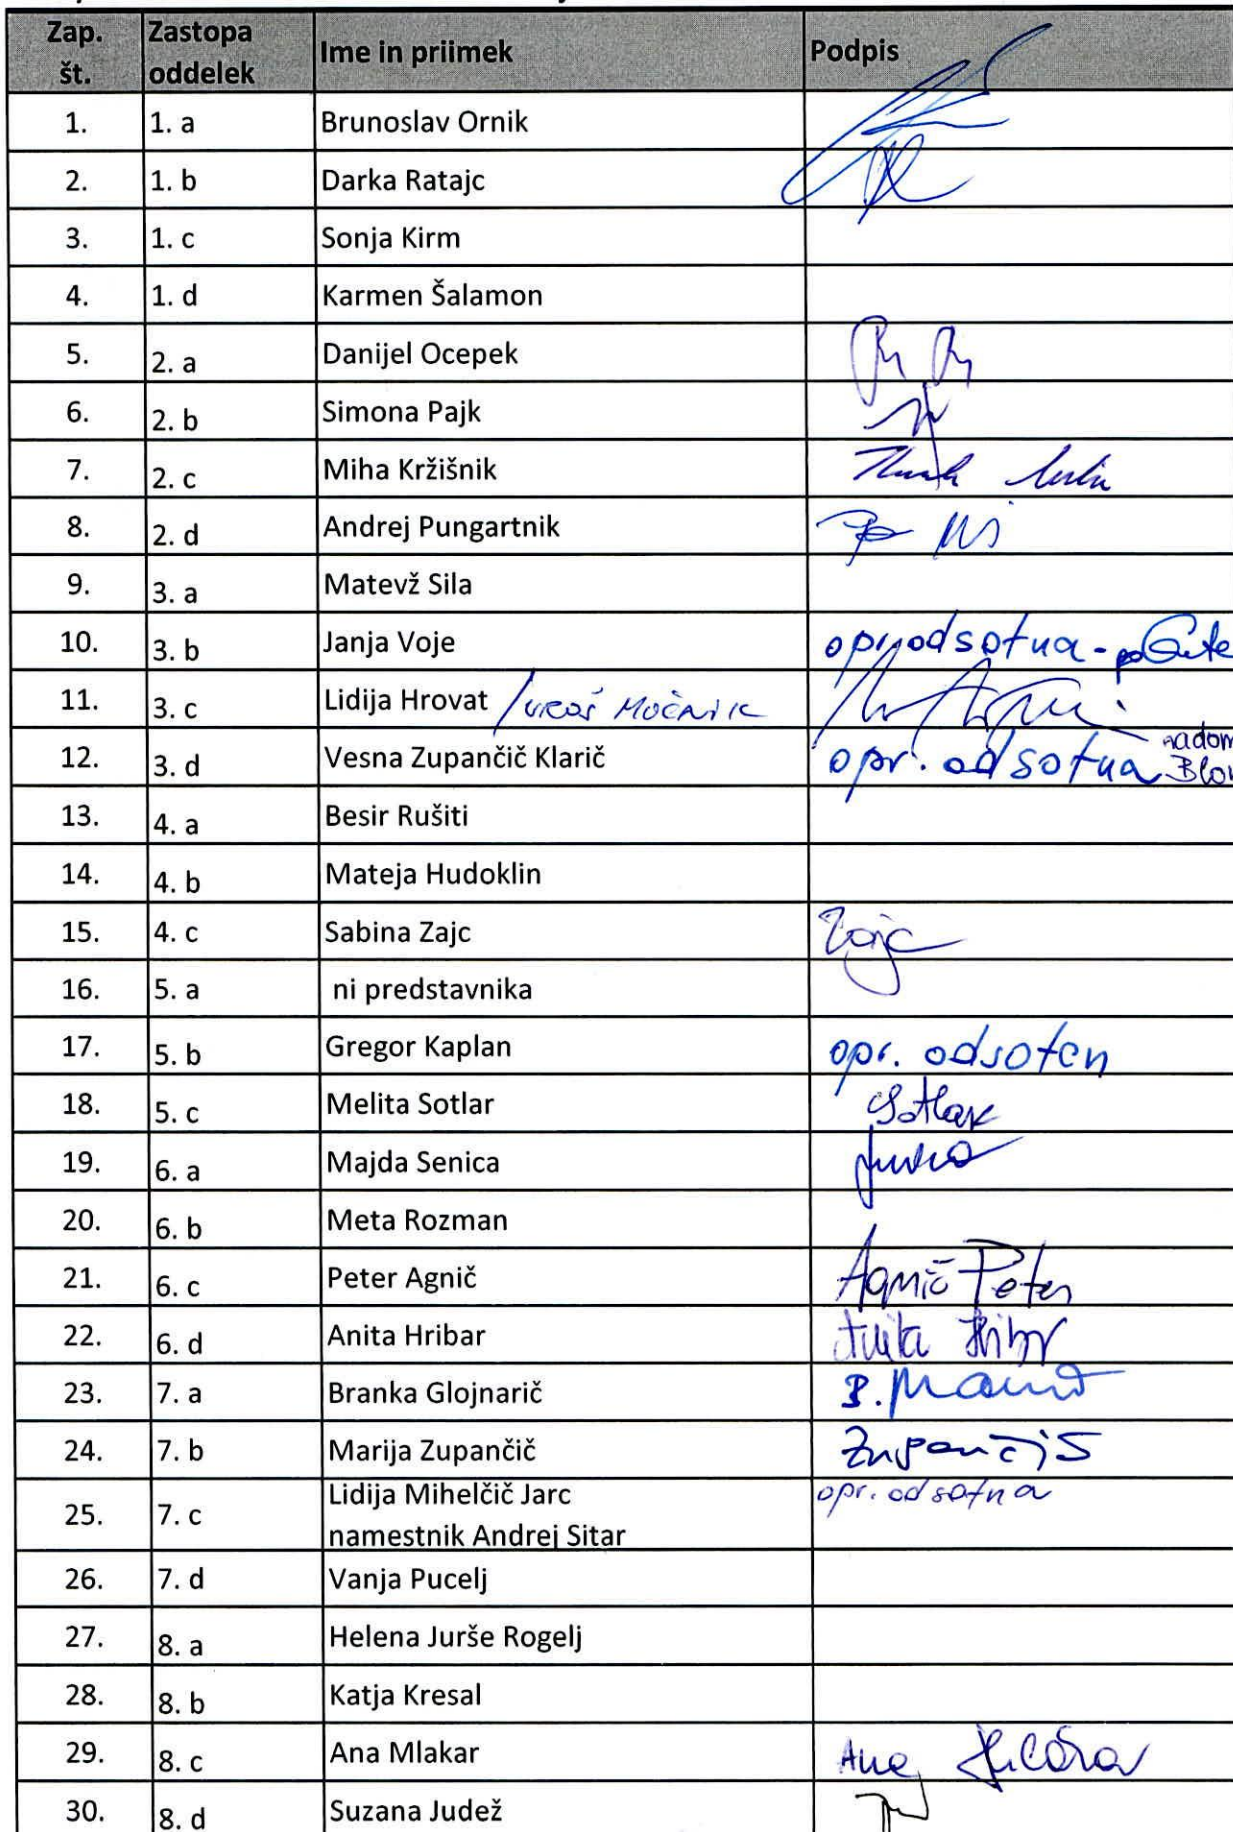 Zap. št. Zastopa oddelek Ime in priimek Podpis
1. 1. a Brunoslav Ornik
2. 1. b Darka Ratajc
3. 1. c Sonja Kirm
4. 1. d Karmen Šalamon
5. 2. a Danijel Ocepek
6. 2. b Simona Pajk
7. 2. c Miha Kržišnik
8. 2. d Andrej Pungartnik
9. 3. a Matevž Sila
10. 3. b Janja Voje opr. odsotna -
11. 3. c Lidija Hrovat / Močnik
12. 3. d Vesna Zupančič Klarič opr. odsotna
13. 4. a Besir Rušiti
14. 4. b Mateja Hudoklin
15. 4. c Sabina Zajc Zajc
16. 5. a ni predstavnika
17. 5. b Gregor Kaplan opr. odsoten
18. 5. c Melita Sotlar Sotlar
19. 6. a Majda Senica
20. 6. b Meta Rozman
21. 6. c Peter Agnič Agnič Peter
22. 6. d Anita Hribar Anita
23. 7. a Branka Glojnarič B.
24. 7. b Marija Zupančič Zupančič
25. 7. c Lidija Mihelčič Jarc opr. odsotna
namestnik Andrej Sitar
26. 7. d Vanja Pucelj
27. 8. a Helena Jurše Rogelj
28. 8. b Katja Kresal
29. 8. c Ana Mlakar Ana
30. 8. d Suzana Judež